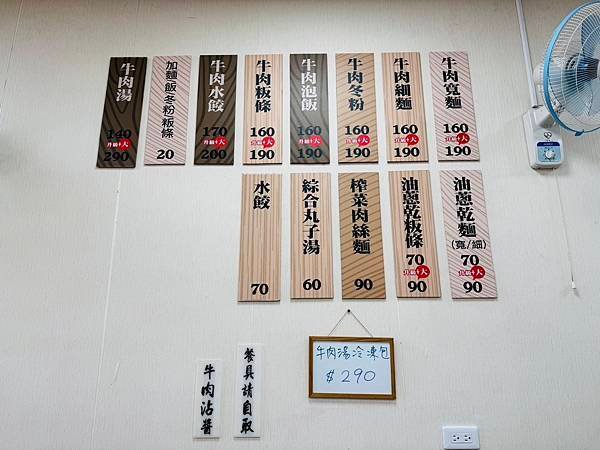 牛肉寬麵
160
升級+大
190
牛肉細麵
160
升級+大
190
牛肉冬粉
160
升級+大
190
牛肉泡飯
160
升級+大
190
牛肉粄條
160
升級+大
190
牛肉水餃
170
升級+大
200
加麵/飯/冬粉/粄條
20
牛肉湯
140
升級+大
290
油蔥乾麵
(寬/細)
70
升級+大
90
油蔥乾粄條
70
升級+大
90
榨菜肉絲麵
90
綜合丸子湯
60
水餃
70
牛肉湯冷凍包
$290
餐具請自取
牛肉沾醬